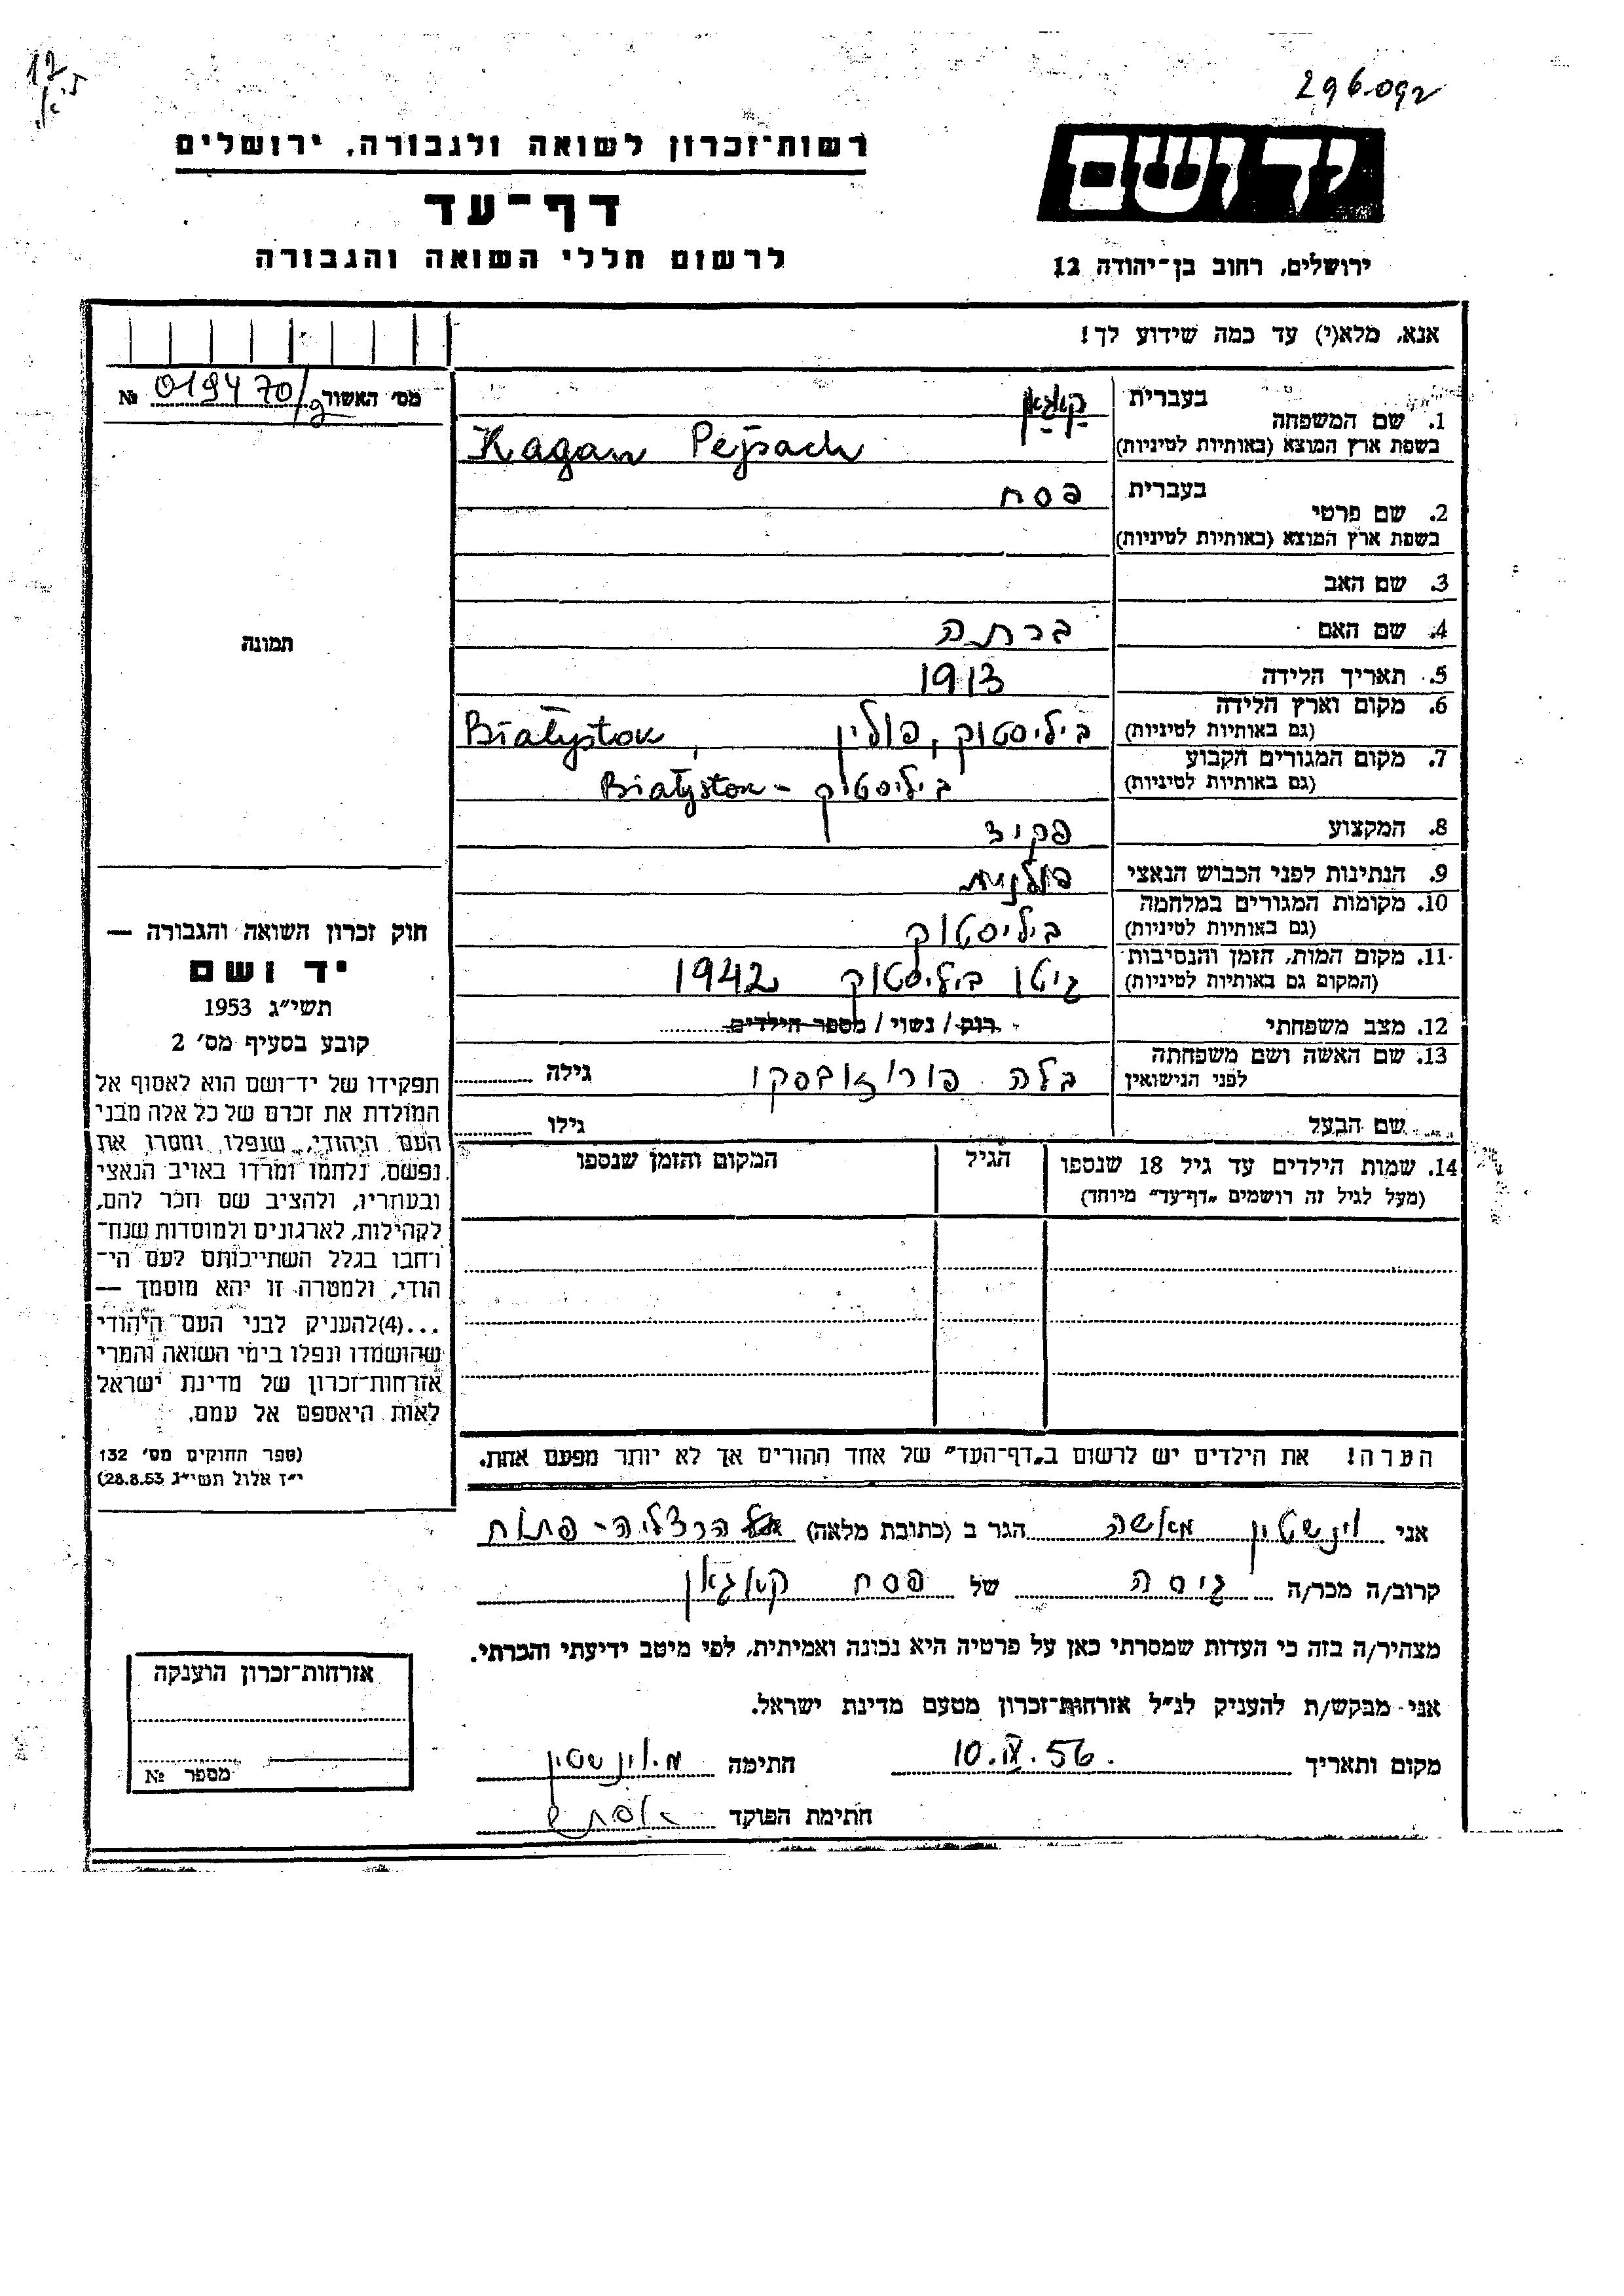 296092
יד ושם
ירושלים, רחוב בן־יהודה 12
רשות־זכרון לשואה ולגבורה, ירושלים
דף־עד
לרשום חללי השואה והגבורה
אנא, מלא(י) עד כמה שידוע לך!
מס׳ האשור 019470/ № 
1. שם המשפחה בעברית קאגאן
בשפת ארץ המוצא (באותיות לטיניות) Kagan Pejsach
2. שם פרטי בעברית פסח
בשפת ארץ המוצא (באותיות לטיניות)
3. שם האב
4. שם האם ברתה
5. תאריך הלידה 1913
6. מקום וארץ הלידה ביליסטוק, פולין, Białystok
(גם באותיות לטיניות)
7. מקום המגורים הקבוע ביליסטוק - Białystok
(גם באותיות לטיניות)
8. המקצוע פקיד
9. הנתינות לפני הכבוש הנאצי פולנית
10. מקומות המגורים במלחמה ביליסטוק
(גם באותיות לטיניות)
11. מקום המות, הזמן והנסיבות גיטו ביליסטוק 1942
(המקום גם באותיות לטיניות)
12. מצב משפחתי רווק / נשוי / מספר הילדים
13. שם האשה ושם משפחתה בלה גילה
לפני הנישואין
שם הבעל גילו
14. שמות הילדים עד גיל 18 שנספו הגיל המקום והזמן שנספו
(מעל לגיל זה רושמים „דף־עד״ מיוחד)
הערה! את הילדים יש לרשום ב„דף־העד״ של אחד ההורים אך לא יותר מפעם אחת.
תמונה
חוק זכרון השואה והגבורה —
יד ושם
תשי״ג 1953
קובע בסעיף מס׳ 2
תפקידו של יד־ושם הוא לאסוף אל
המולדת את זכרם של כל אלה מבני
העם היהודי, שנפלו, ומסרו את
נפשם, נלחמו ומרדו באויב הנאצי
ובעוזריו, ולהציב שם וזכר להם,
לקהילות, לארגונים ולמוסדות שנח־
רבו בגלל השתייכותם לעם הי־
הודי, ולמטרה זו יהא מוסמך —
...(4) להעניק לבני העם היהודי
שהושמדו ונפלו בימי השואה והמרי
אזרחות־זכרון של מדינת ישראל
לאות היאספם אל עמם.
(ספר החוקים מס׳ 132
י״ז אלול תשי״ג 28.8.53)
אני וינשטין מאשה הגר ב (כתובת מלאה) הרצליה - פתוח
קרוב/ה מכר/ה גיסה של פסח קאגאן
מצהיר/ה בזה כי העדות שמסרתי כאן על פרטיה היא נכונה ואמיתית, לפי מיטב ידיעתי והכרתי.
אני מבקש/ת להעניק לנ״ל אזרחות־זכרון מטעם מדינת ישראל.
מקום ותאריך 10.IX.56. חתימה מ. וינשטין
חתימת הפוקד
אזרחות־זכרון הוענקה
מספר №